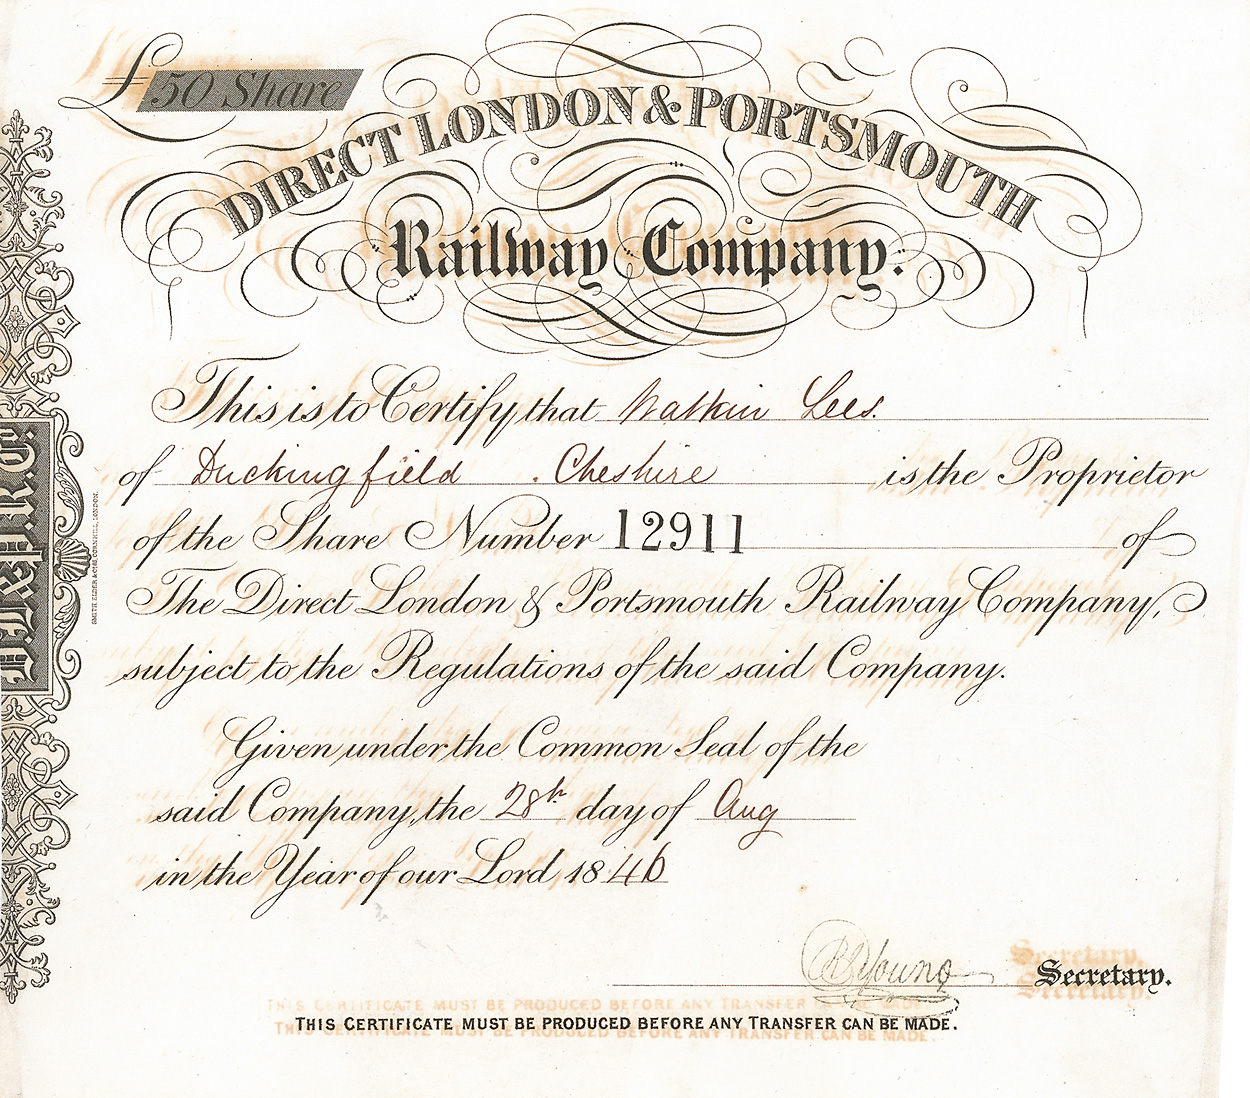 £ 50 Share
DIRECT LONDON & PORTSMOUTH
Railway Company.
This is to Certify that Watkin Lees.
of Duckingfield . Cheshire is the Proprietor
of the Share Number 12911 of
The Direct London & Portsmouth Railway Company,
subject to the Regulations of the said Company.
Given under the Common Seal of the
said Company, the 28th day of Aug
in the Year of our Lord 1846
Young
Secretary.
THIS CERTIFICATE MUST BE PRODUCED BEFORE ANY TRANSFER CAN BE MADE.
D.L.&P.R.C.
SMITH, ELDER & CO. 65 CORNHILL, LONDON.